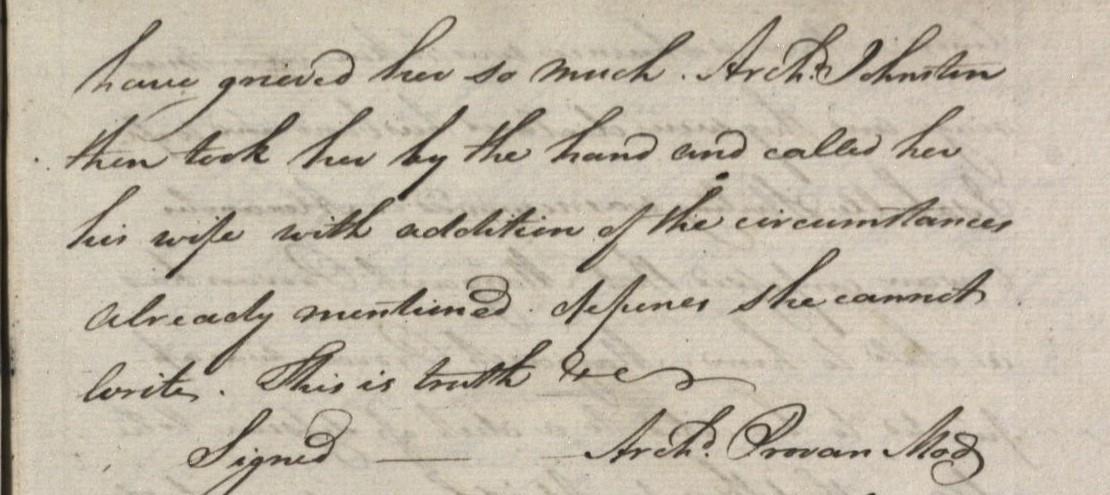 have grieved her so much. Archd. Johnston
then took her by the hand and called her
his wife with addition of the circumstances
already mentioned. depones she cannot
write. This is truth &c
Signed — — Archd. Provan Modr